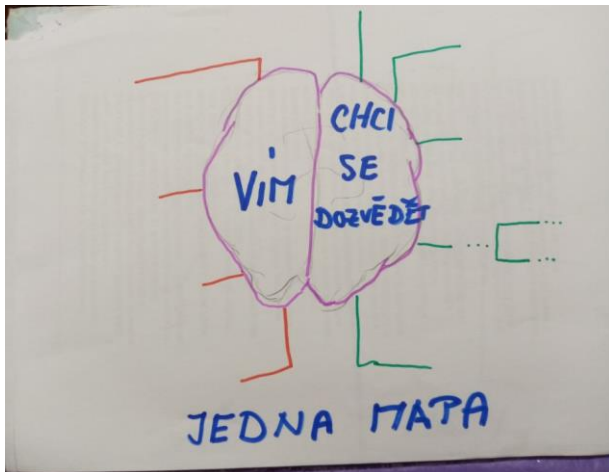 VÍM
CHCI
SE
DOZVĚDĚT
JEDNA MAPA